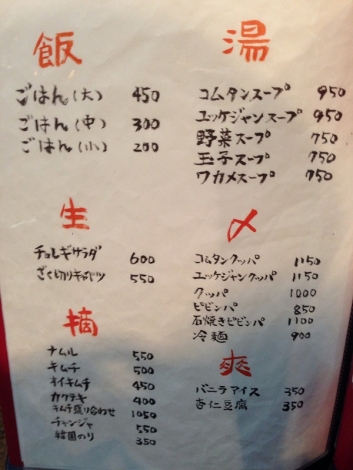 飯
ごはん(大) 450
ごはん(中) 300
ごはん(小) 200
生
チョレギサラダ 600
ざく切りキャベツ 550
摘
ナムル 550
キムチ 500
オイキムチ 450
カクテキ 400
キムチ盛り合わせ 1050
チャンジャ 550
韓国のり 350
湯
コムタンスープ 950
ユッケジャンスープ 950
野菜スープ 750
玉子スープ 750
ワカメスープ 750
〆
コムタンクッパ 1150
ユッケジャンクッパ 1150
クッパ 1000
ビビンバ 850
石焼きビビンバ 1100
冷麺 900
爽
バニラアイス 350
杏仁豆腐 350